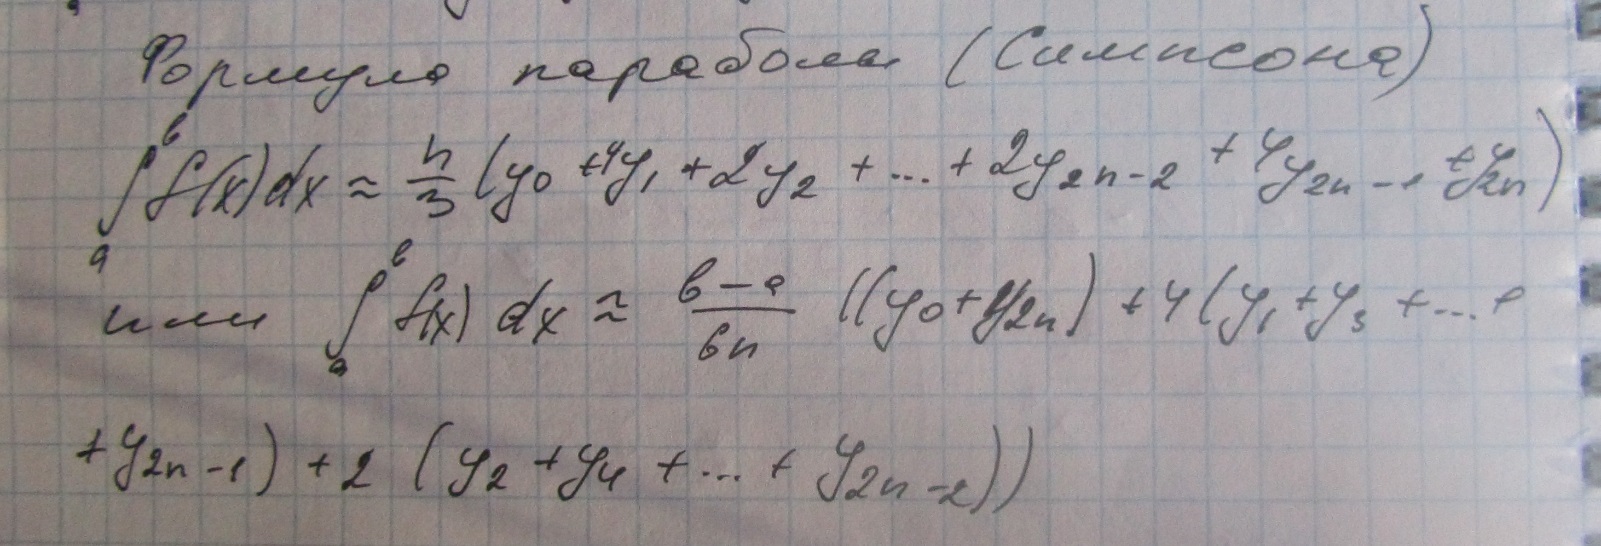 Формула параболы (Симпсона)
∫ₐᵇ f(x)dx ≈ h/3 (y₀ + 4y₁ + 2y₂ + ... + 2y₂ₙ₋₂ + 4y₂ₙ₋₁ + y₂ₙ)
или ∫ₐᵇ f(x) dx ≈ (b-a)/6n ((y₀ + y₂ₙ) + 4(y₁ + y₃ + ... +
+ y₂ₙ₋₁) + 2 (y₂ + y₄ + ... + y₂ₙ₋₂))